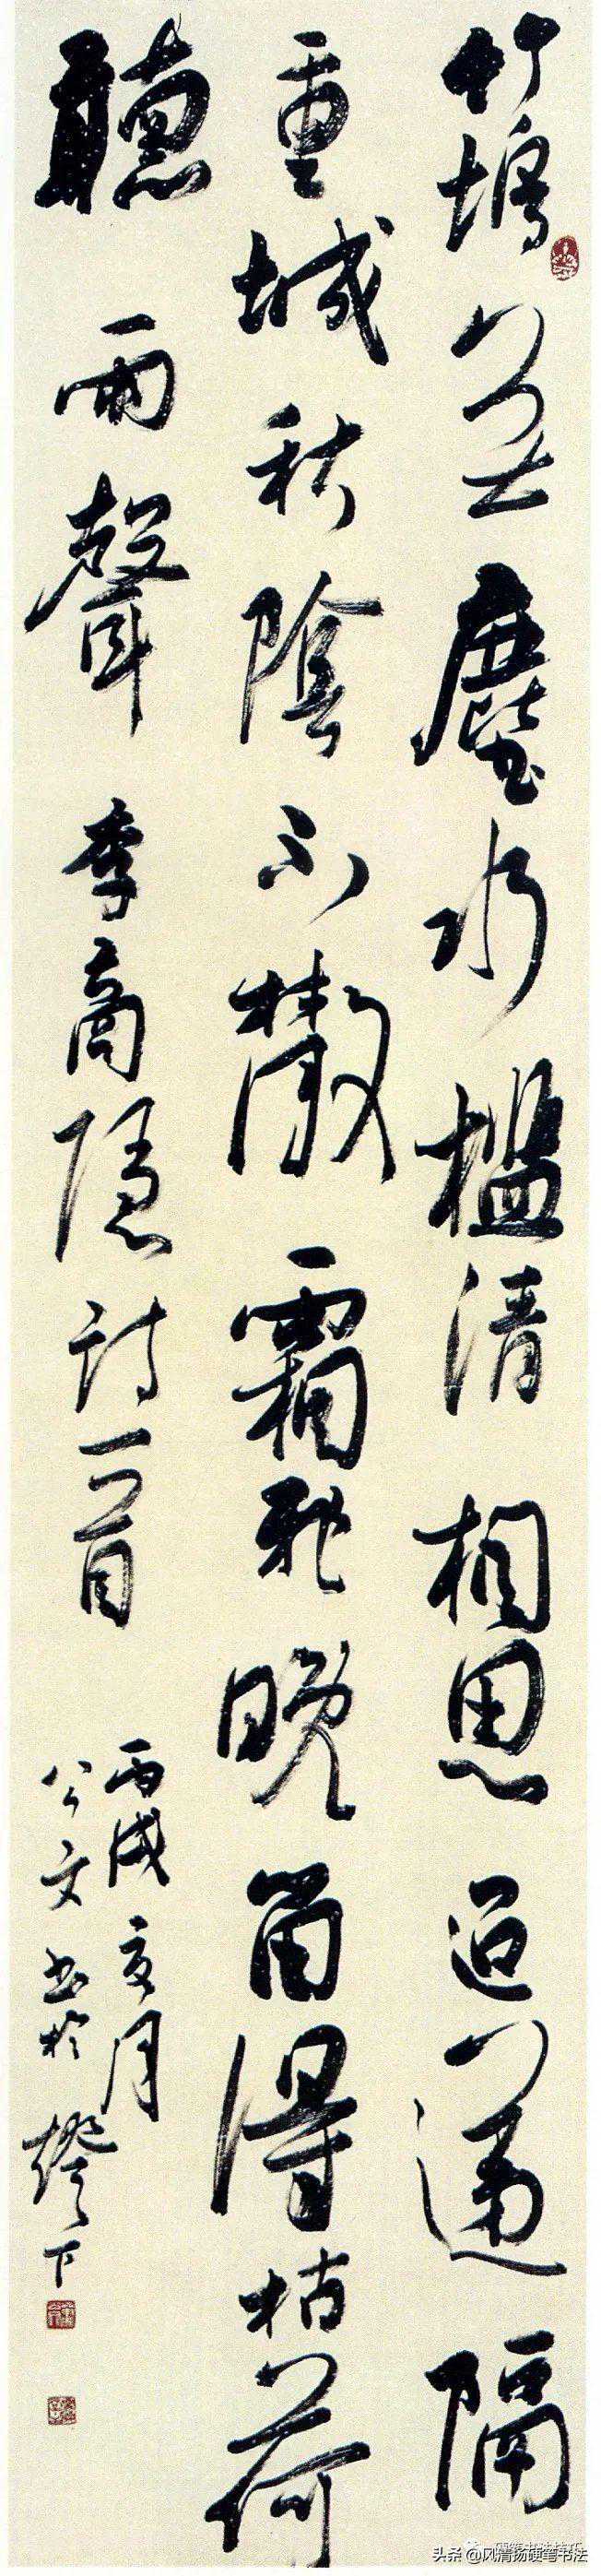 竹塢無塵水檻清相思迢遞隔
重城秋陰不散霜飛晚留得枯荷
聽雨聲李商隱詩一首
丙戌夏月
公文書於燈下
头条 @风清扬硬笔书法